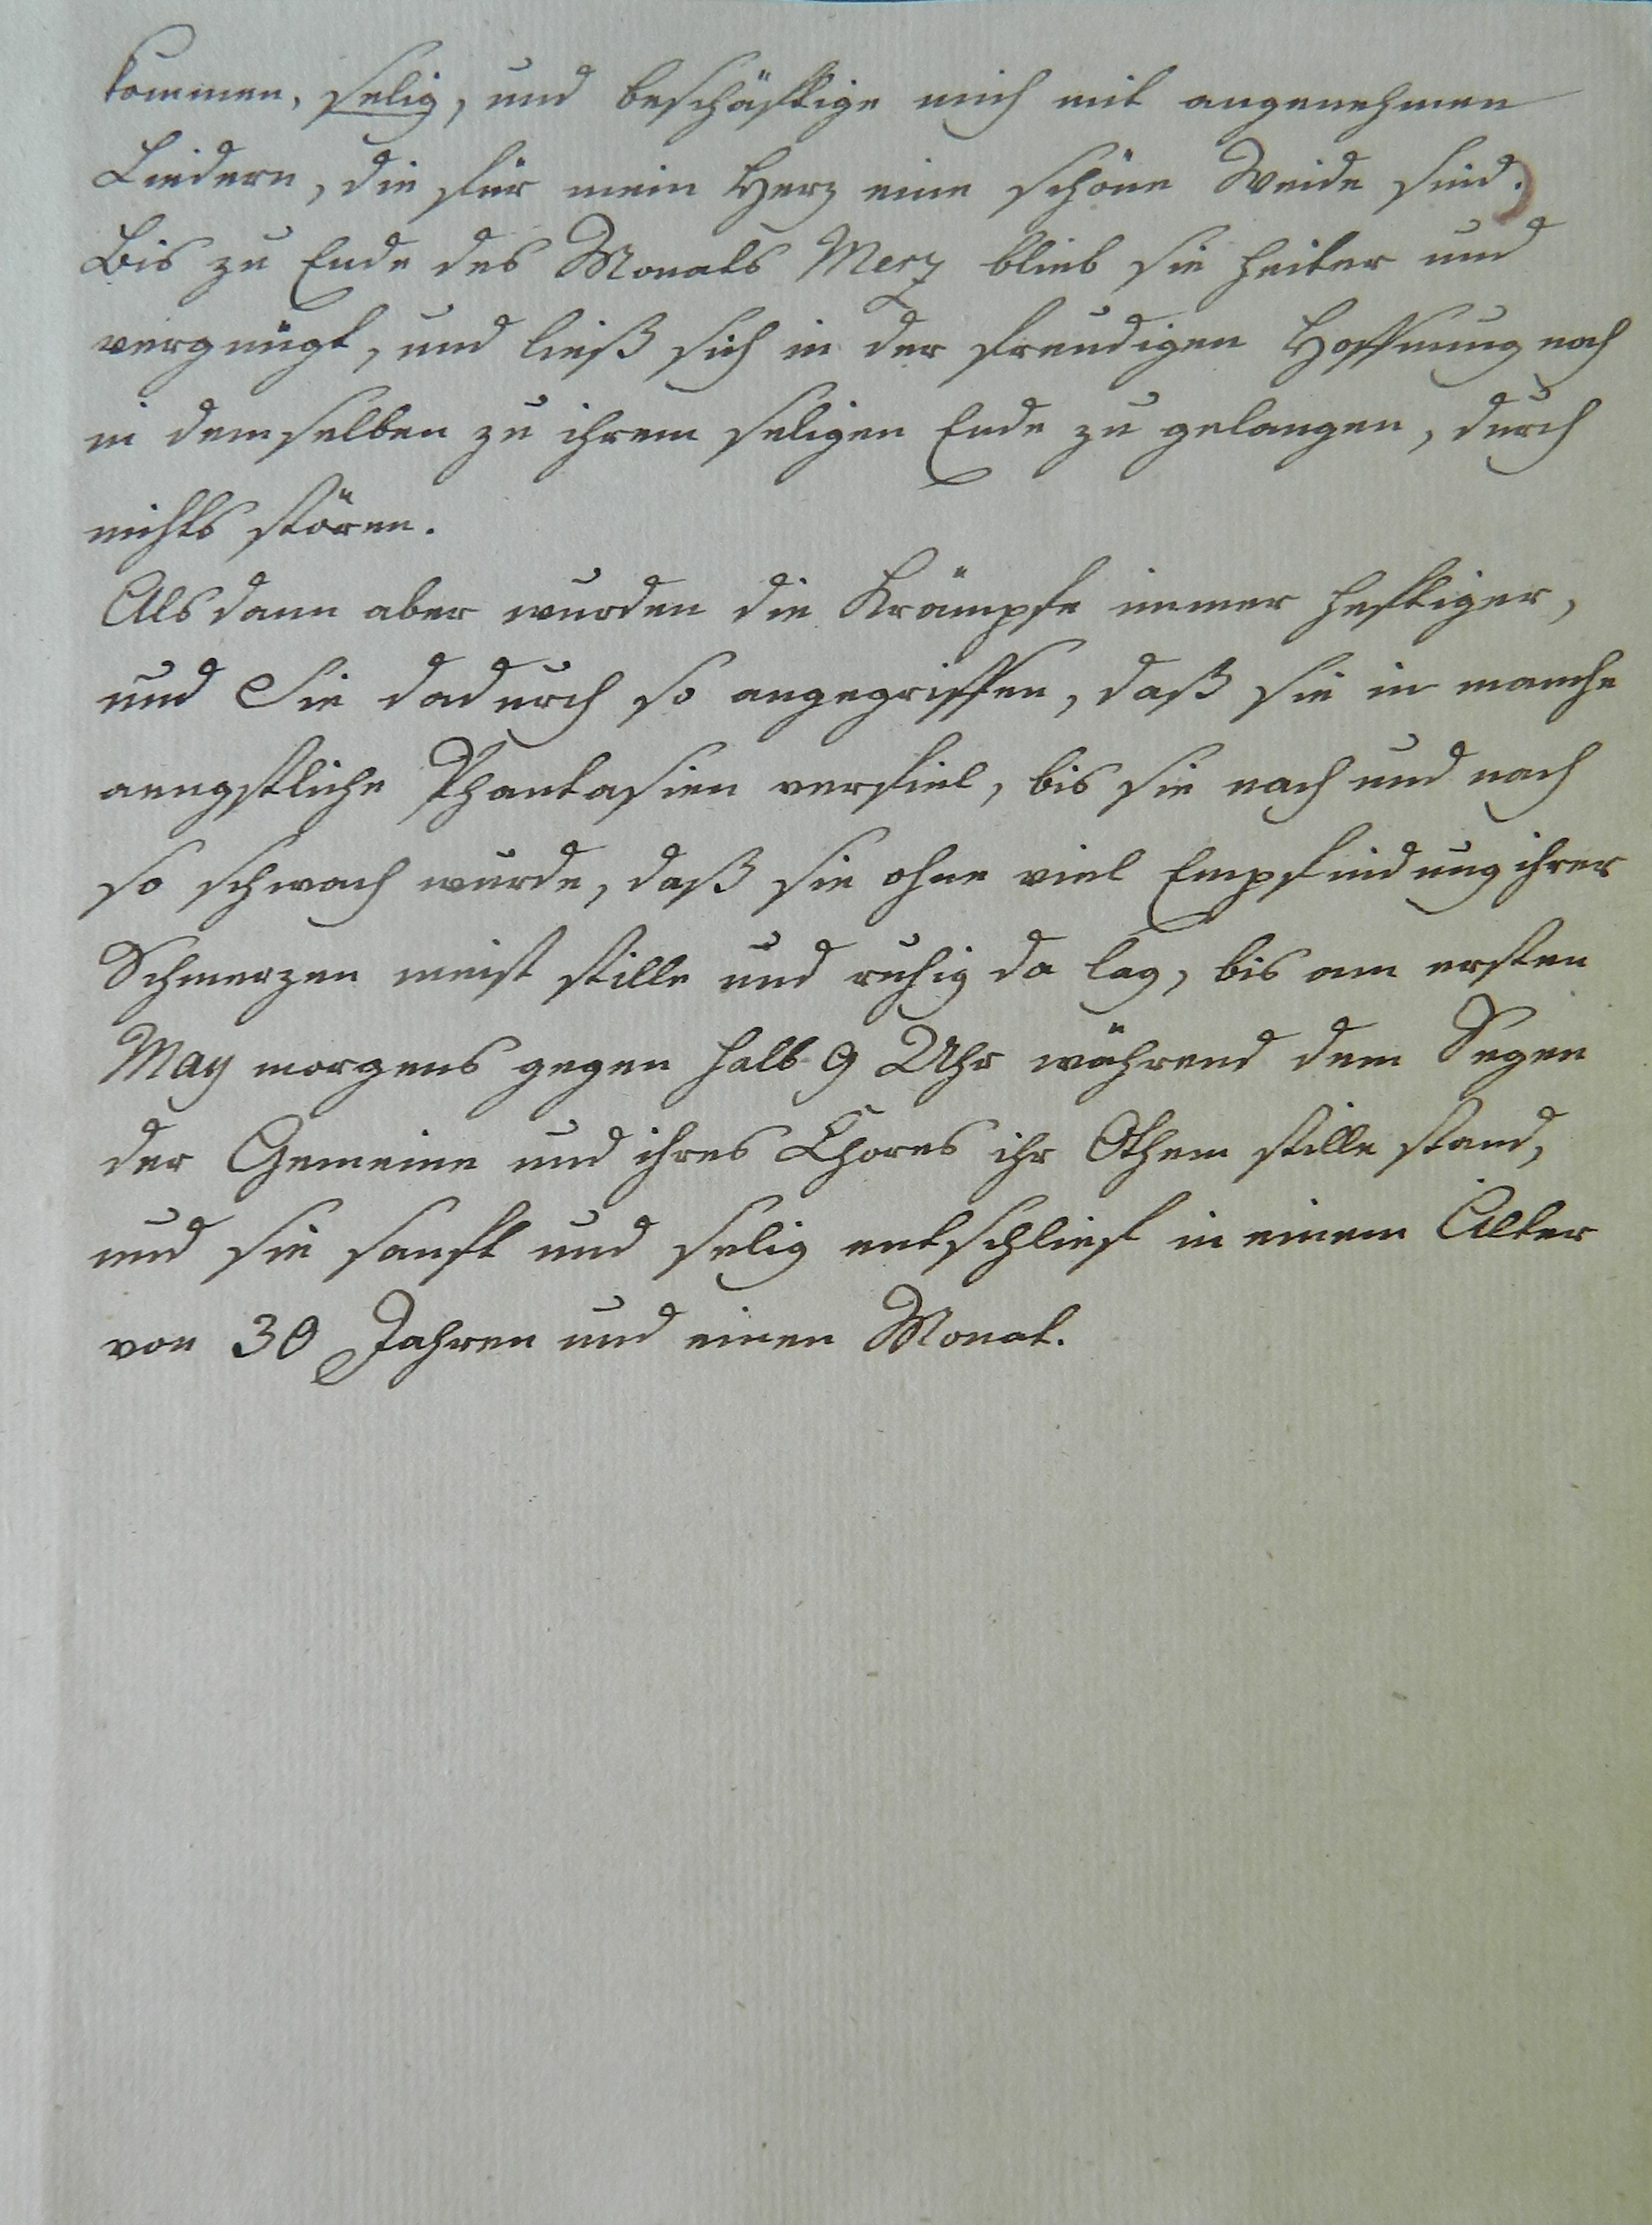 kommen, selig, und beschäftige mich mit angenehmen
Liedern, die für mein Herz eine schöne Weide sind.
Bis zu Ende des Monats Merz blieb sie heiter und
vergnügt, und ließ sich in der freudigen Hoffnung noch
in demselben zu ihrem seligen Ende zu gelangen, durch
nichts stören.
Alsdann aber wurden die Krämpfe immer heftiger,
und Sie dadurch so angegriffen, daß sie in manche
aengstliche Phantasien verfiel, bis sie nach und nach
so schwach wurde, daß sie ohne viel Empfindung ihrer
Schmerzen meist stille und ruhig da lag, bis am ersten
May morgens gegen halb 9 Uhr während dem Segen
der Gemeine und ihres Chores ihr Othem stille stand,
und sie sanft und selig entschlief in einem Alter
von 30 Jahren und einen Monat.